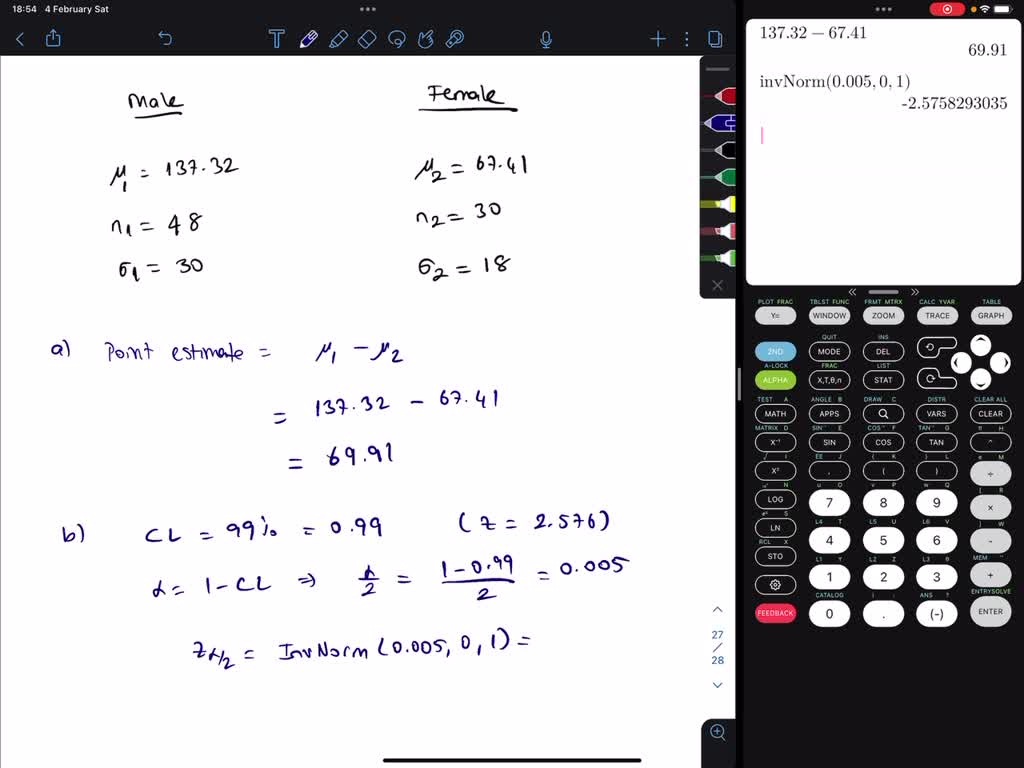 18:54 4 February Sat
Male
Female
μ₁ = 137.32
μ₂ = 67.41
n₁ = 48
n₂ = 30
σ₁ = 30
σ₂ = 18
a) Point estimate = μ₁ - μ₂
= 137.32 - 67.41
= 69.91
b) CL = 99% = 0.99 (z = 2.576)
α = 1 - CL ⇒ α/2 = (1-0.99)/2 = 0.005
zα/2 = InvNorm(0.005, 0, 1) =
27
/
28
137.32 − 67.41
69.91
invNorm(0.005, 0, 1)
-2.5758293035
PLOT FRAC TBLST FUNC FRMT MTRX CALC YVAR TABLE
Y= WINDOW ZOOM TRACE GRAPH
QUIT INS
2ND MODE DEL
A-LOCK FRAC LIST
ALPHA X,T,θ,n STAT
TEST A ANGLE B DRAW C DISTR CLEAR ALL
MATH APPS VARS CLEAR
MATRIX D SIN⁻¹ E COS⁻¹ F TAN⁻¹ G π H
X⁻¹ SIN COS TAN ^
√ I EE J { K } L e M
X² , ( ) ÷
N u O v P w Q [ R
LOG 7 8 9 ×
S L4 T L5 U L6 V ] W
LN 4 5 6 -
RCL X L1 Y L2 Z L3 θ MEM "
STO 1 2 3 +
CATALOG i : ANS ? ENTRYSOLVE
FEEDBACK 0 . (-) ENTER